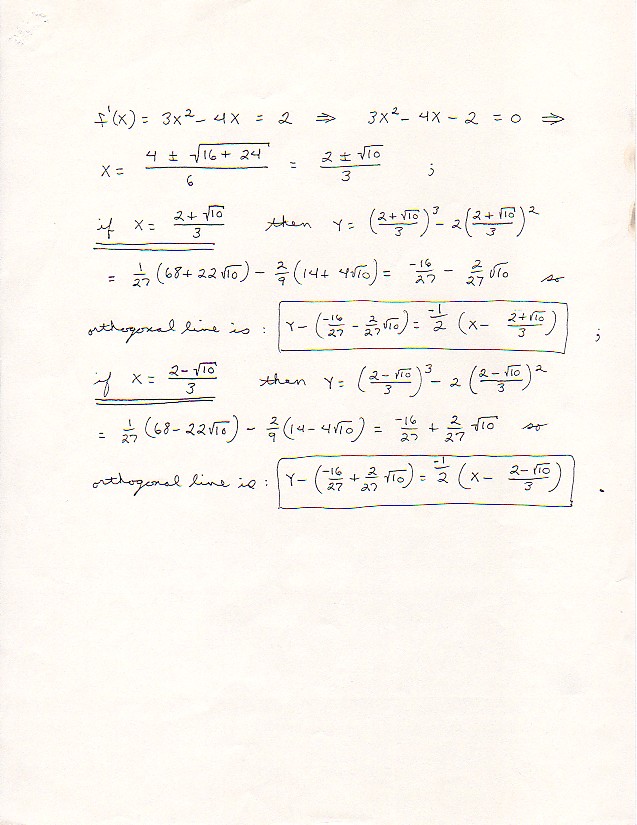 f'(x) = 3x² - 4x = 2 ⇒ 3x² - 4x - 2 = 0 ⇒
x = (4 ± √(16 + 24))/6 = (2 ± √10)/3 ;
if x = (2 + √10)/3 then Y = ((2 + √10)/3)³ - 2((2 + √10)/3)²
= 1/27 (68 + 22√10) - 2/9 (14 + 4√10) = -16/27 - 2/27 √10 so
orthogonal line is : Y - (-16/27 - 2/27 √10) = -1/2 (x - (2 + √10)/3) ;
if x = (2 - √10)/3 then Y = ((2 - √10)/3)³ - 2((2 - √10)/3)²
= 1/27 (68 - 22√10) - 2/9 (14 - 4√10) = -16/27 + 2/27 √10 so
orthogonal line is : Y - (-16/27 + 2/27 √10) = -1/2 (x - (2 - √10)/3) .